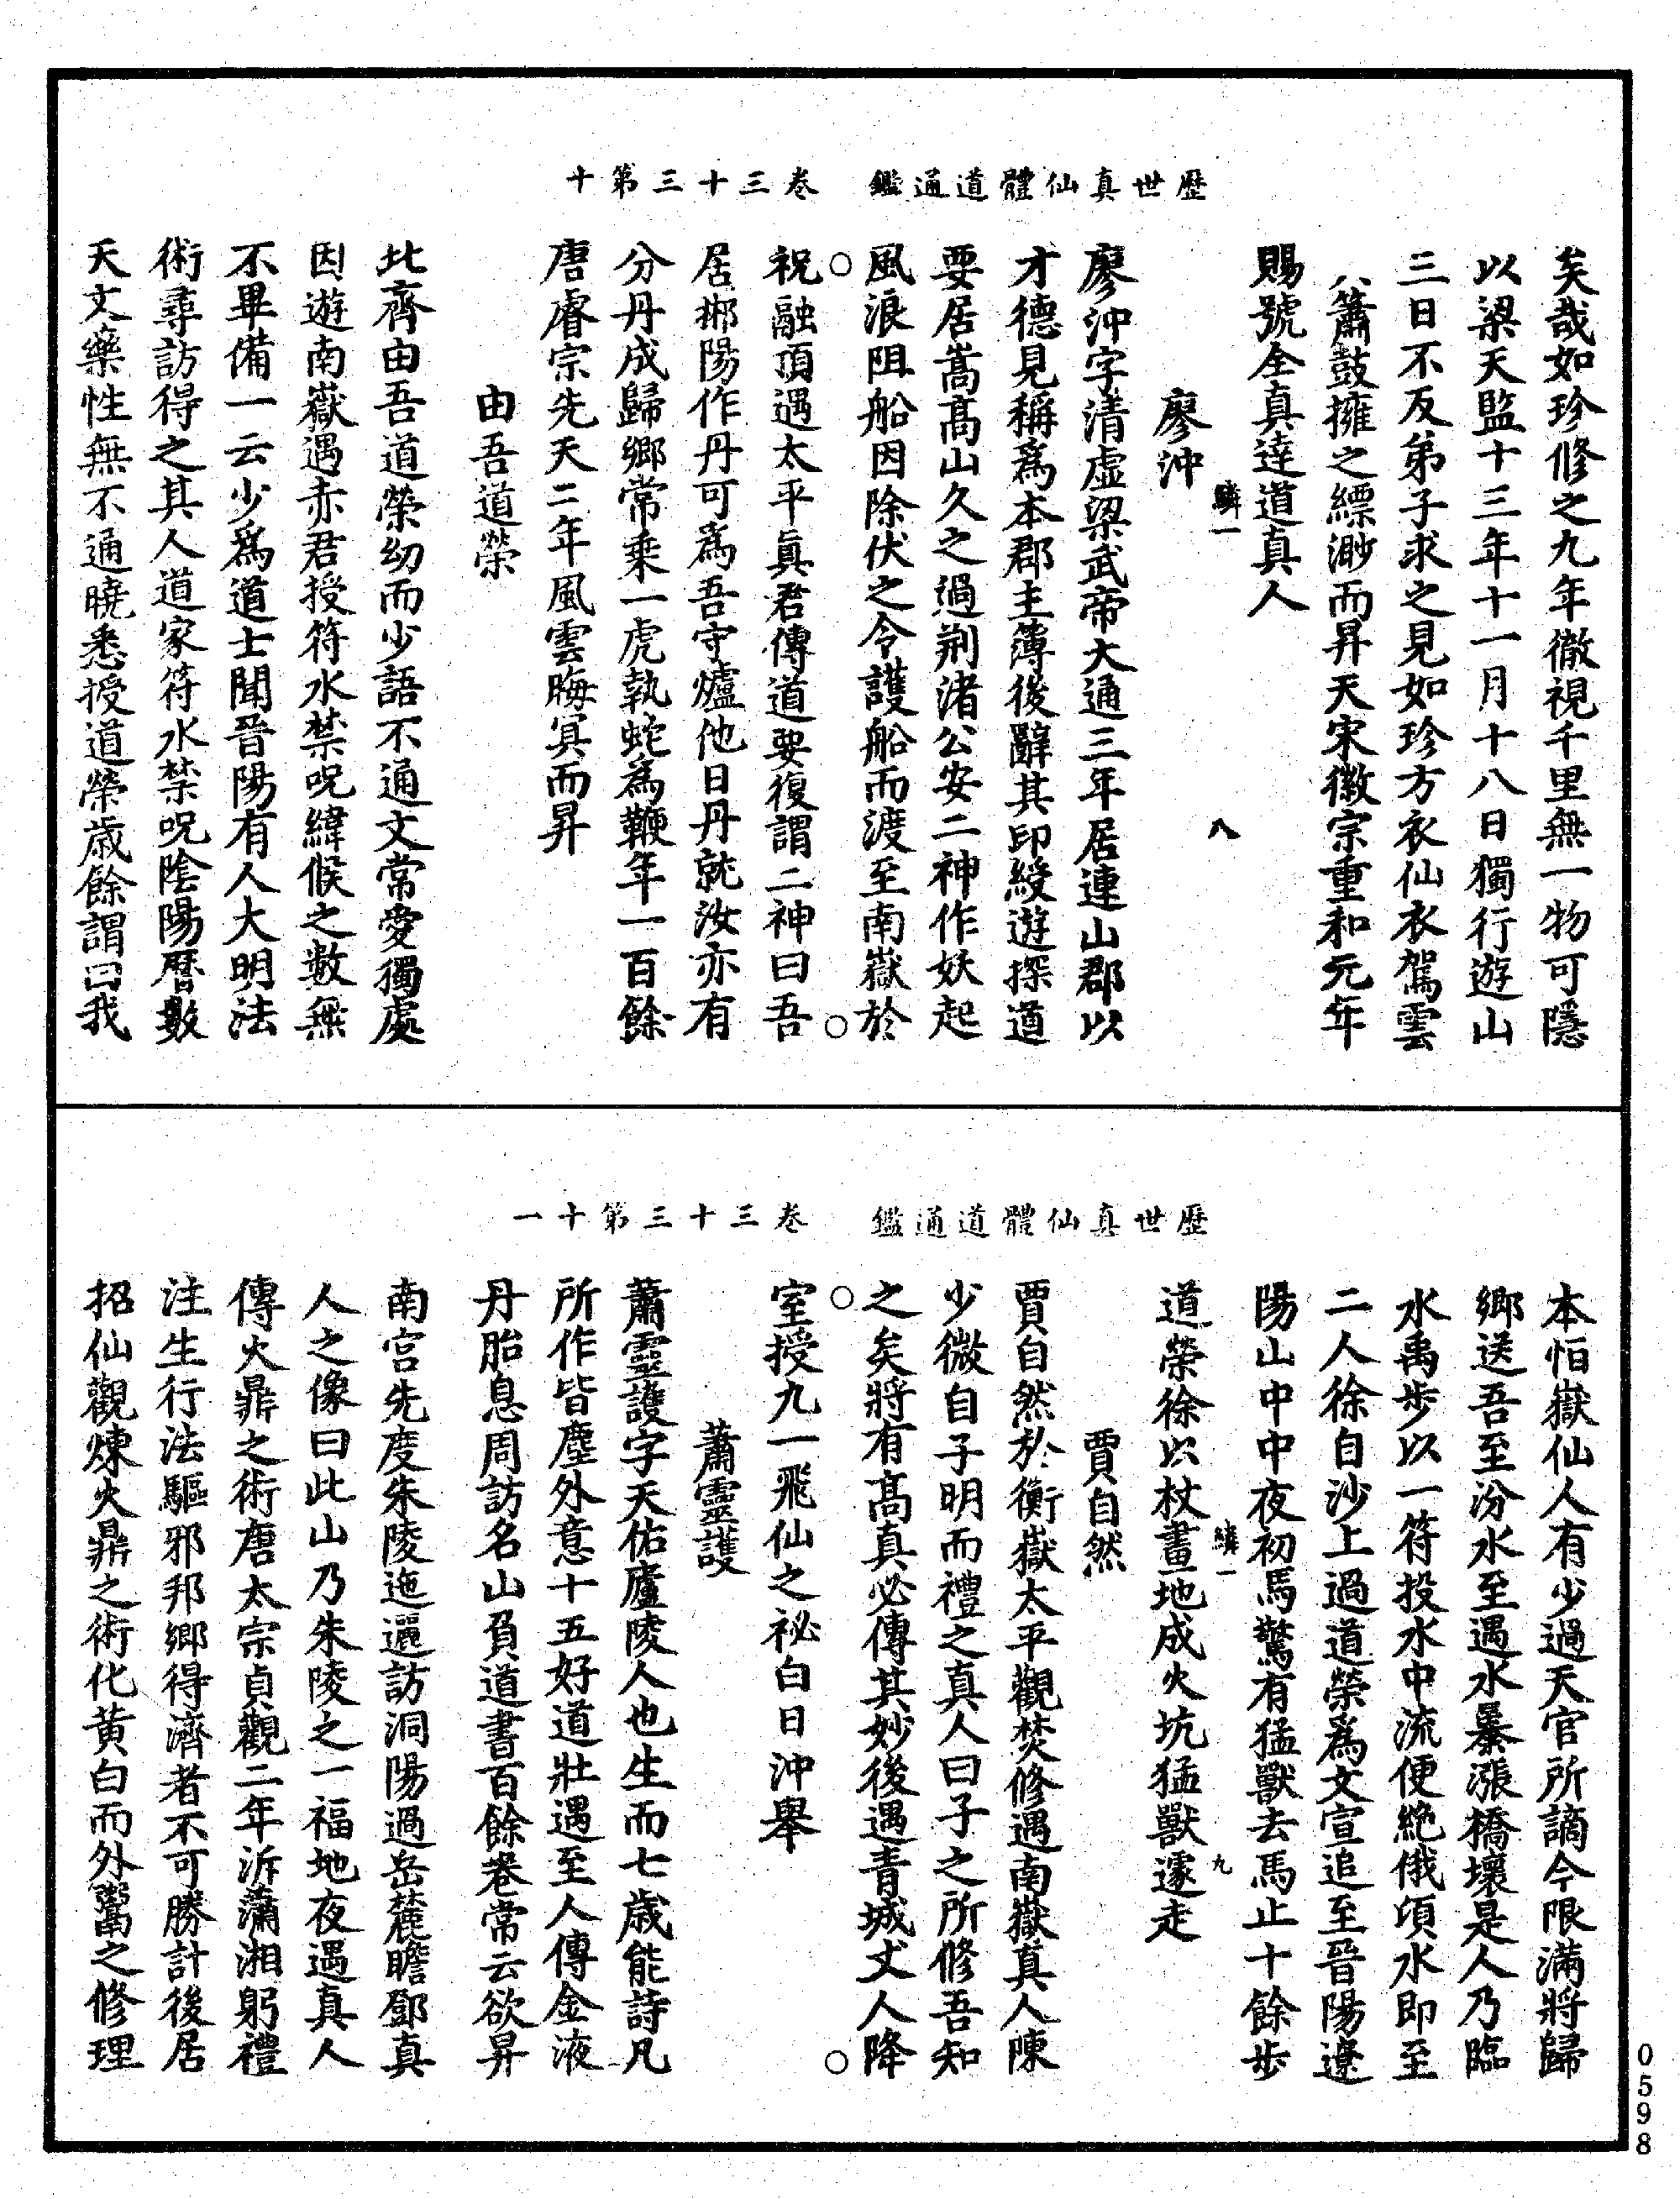 歷世真仙體道通鑑　卷三十三第十
矣哉如珍修之九年徹視千里無一物可隱
以梁天監十三年十一月十八日獨行遊山
三日不反弟子求之見如珍方衣仙衣駕雲
八簫鼓擁之縹渺而昇天宋徽宗重和元年
賜號全真達道真人
鱗一　八
廖沖
廖沖字清虛梁武帝大通三年居連山郡以
才德見稱爲本郡主簿後辭其印綬遊探道
要居嵩高山久之過荆渚公安二神作妖起
風浪阻船因除伏之令護船而渡至南嶽於
○　○
祝融頂遇太平眞君傳道要復謂二神曰吾
居郴陽作丹可爲吾守爐他日丹就汝亦有
分丹成歸鄉常乗一虎執蛇爲鞭年一百餘
唐睿宗先天二年風雲晦冥而昇
由吾道榮
北齊由吾道榮幼而少語不通文常愛獨處
因遊南嶽遇赤君授符水禁呪緯候之數無
不畢備一云少爲道士聞晉陽有人大明法
術尋訪得之其人道家符水禁呪陰陽曆數
天文藥性無不通曉悉授道榮歲餘謂曰我
歷世真仙體道通鑑　卷三十三第十一
本怕嶽仙人有少過天官所謫今限滿將歸
鄉送吾至汾水至遇水暴漲橋壞是人乃臨
水禹步以一符投水中流便絶俄頃水即至
二人徐自沙上過道榮爲文宣追至晉陽遼
陽山中中夜初馬驚有猛獸去馬止十餘步
鱗一　九
道榮徐以杖畫地成火坑猛獸遽走
賈自然
賈自然於衡嶽太平觀焚修遇南嶽真人陳
少微自子明而禮之真人曰子之所修吾知
之矣將有高真必傳其妙後遇青城丈人降
○　○
室授九一飛仙之祕白日沖舉
蕭靈護
蕭靈護字天佑廬陵人也生而七歲能詩凡
所作皆塵外意十五好道壯遇至人傳金液
丹胎息周訪名山負道書百餘卷常云欲昇
南宮先度朱陵迤邐訪洞陽過岳麓瞻鄧真
人之像曰此山乃朱陵之一福地夜遇真人
傳火鼎之術唐太宗貞觀二年泝瀟湘躬禮
注生行法驅邪邦鄉得濟者不可勝計後居
招仙觀煉火鼎之術化黃白而外鬻之修理
0598